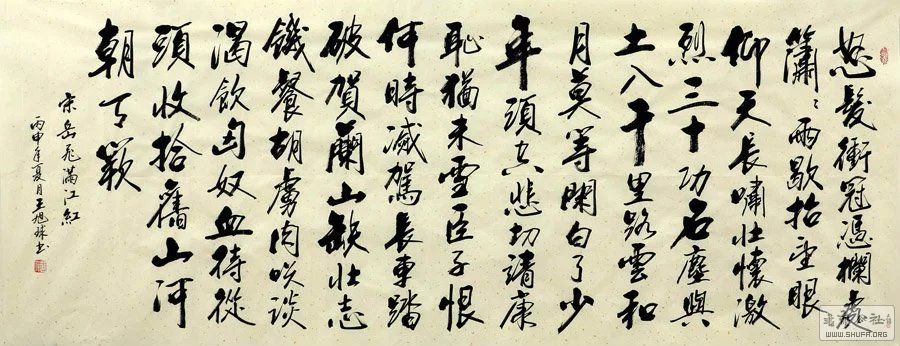 怒髮衝冠憑欄處
簫〻雨歇抬望眼
仰天長嘯壯懷激
烈三十功名塵與
土八千里路雲和
月莫等閑白了少
年頭空悲切靖康
恥猶未雪臣子恨
何時滅駕長車踏
破賀蘭山缺壯志
饑餐胡虜肉笑談
渴飲匈奴血待從
頭收拾舊山河
朝天闕
宋岳飛滿江紅
丙申年夏月王旭珠书
WWW.SHUFA.ORG